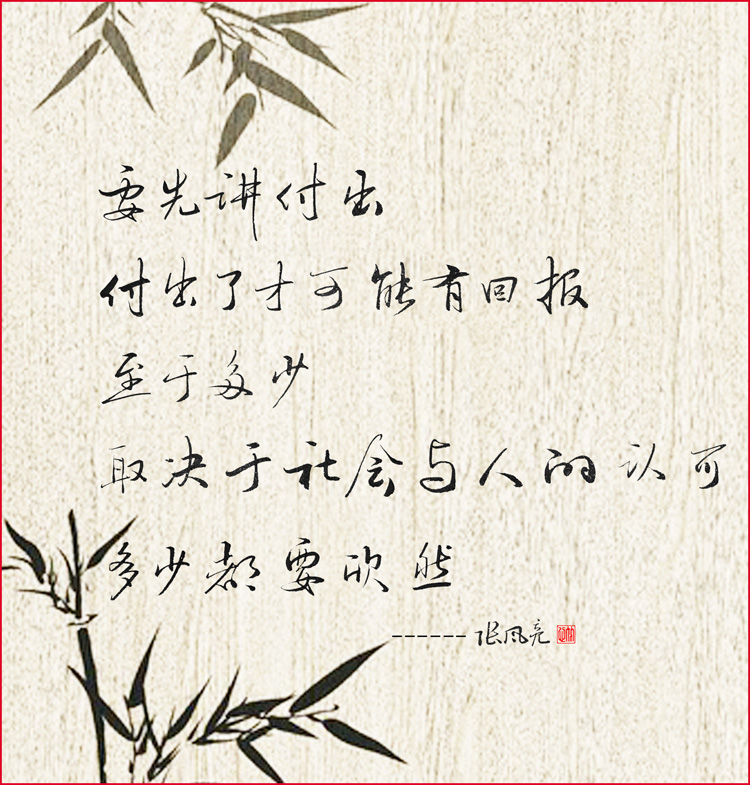 要先讲付出
付出了才可能有回报
至于多少
取决于社会与人的认可
多少都要欣然
------张风亮